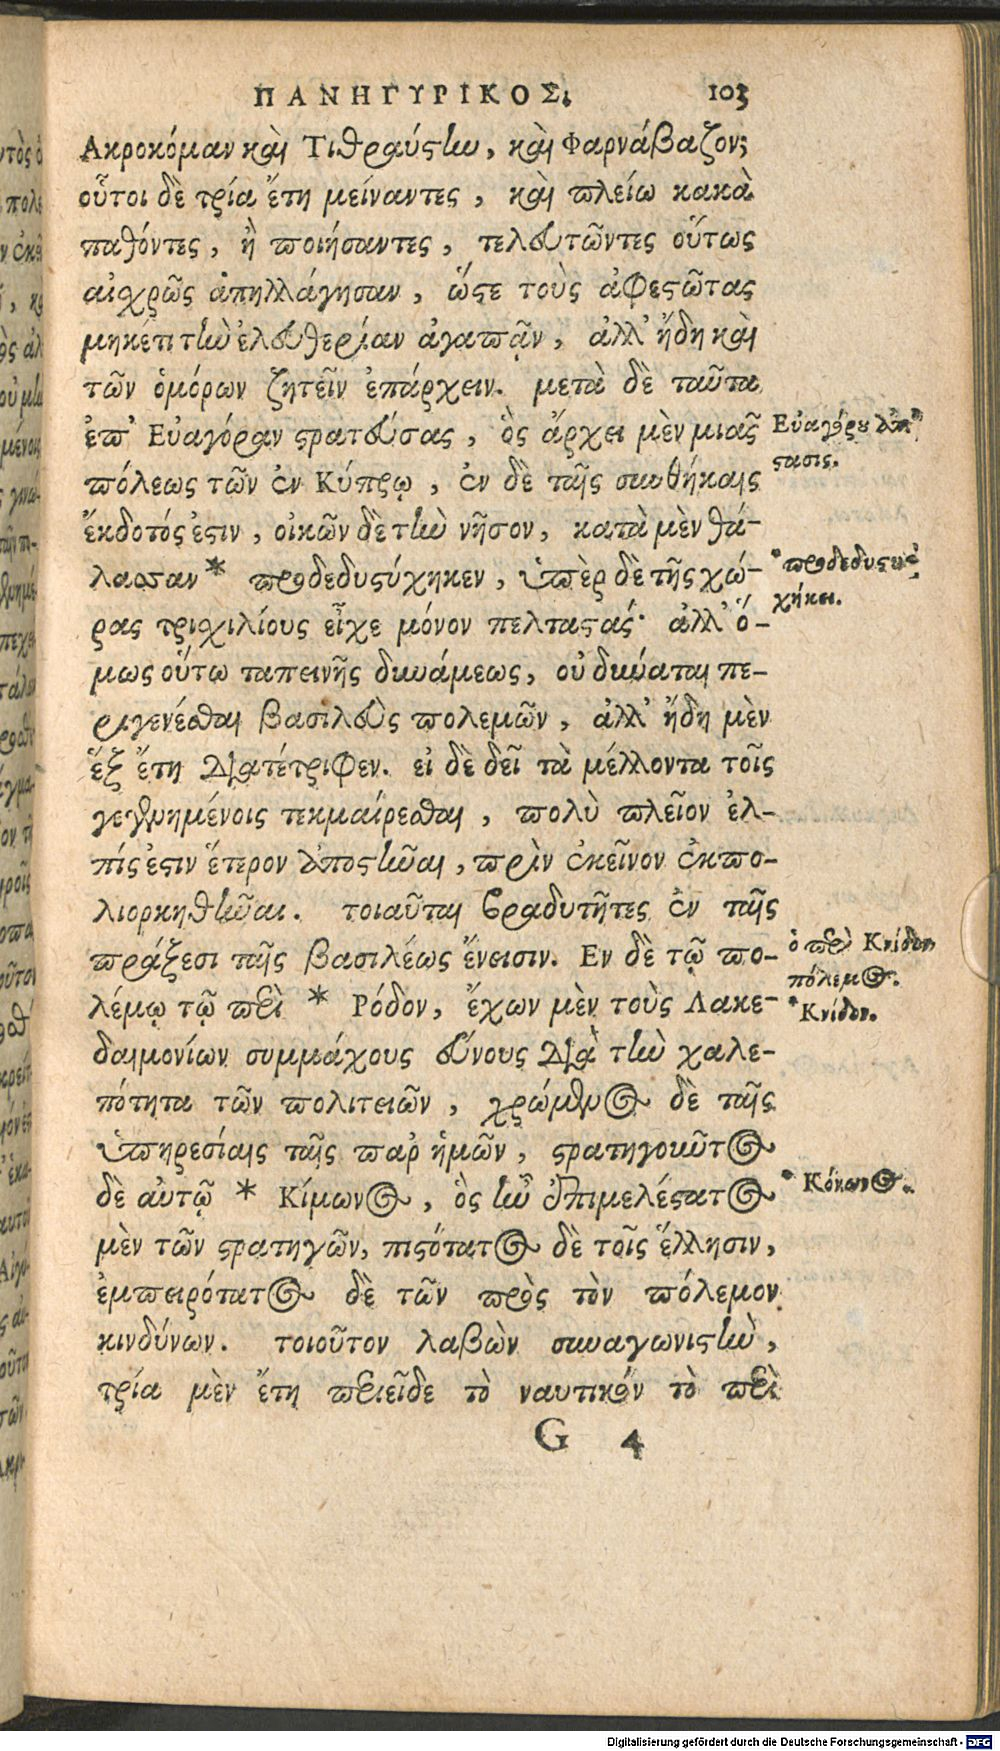 ΠΑΝΗΓΥΡΙΚΟΣ. 103
Ακροκόμαν καὶ Τιθραύστην, καὶ Φαρνάβαζον;
οὗτοι δὲ τρία ἔτη μείναντες, καὶ πλείω κακὰ
παθόντες, ἢ ποιήσαντες, τελευτῶντες οὕτως
αἰσχρῶς ἀπηλλάγησαν, ὥστε τοὺς ἀφεστῶτας
μηκέτι τὴν ἐλευθερίαν ἀγαπᾷν, ἀλλ' ἤδη καὶ
τῶν ὁμόρων ζητεῖν ἐπάρχειν. μετὰ δὲ ταῦτα
ἐπ' Εὐαγόραν στρατεύσας, ὃς ἄρχει μὲν μιᾶς
πόλεως τῶν ἐν Κύπρῳ, ἐν δὲ ταῖς συνθήκαις
ἔκδοτός ἐστιν, οἰκῶν δὲ τὴν νῆσον, κατὰ μὲν θά-
λασσαν * προδεδυστύχηκεν, ὑπὲρ δὲ τῆς χώ-
ρας τρισχιλίους εἶχε μόνον πελταστάς· ἀλλ' ὅ-
μως οὕτω ταπεινῆς δυνάμεως, οὐ δύναται πε-
ριγενέσθαι βασιλεὺς πολεμῶν, ἀλλ' ἤδη μὲν
ἓξ ἔτη διατέτριφεν. εἰ δὲ δεῖ τὰ μέλλοντα τοῖς
γεγενημένοις τεκμαίρεσθαι, πολὺ πλεῖον ἐλ-
πίς ἐστιν ἕτερον ἀποστῆναι, πρὶν ἐκεῖνον ἐκπο-
λιορκηθῆναι. τοιαῦται βραδυτῆτες ἐν ταῖς
πράξεσι ταῖς βασιλέως ἔνεισιν. Εν δὲ τῷ πο-
λέμῳ τῷ περὶ * Ρόδον, ἔχων μὲν τοὺς Λακε-
δαιμονίων συμμάχους εὔνους διὰ τὴν χαλε-
πότητα τῶν πολιτειῶν, χρώμενος δὲ ταῖς
ὑπηρεσίαις ταῖς παρ' ἡμῶν, στρατηγοῦντος
δὲ αὐτῷ * Κίμωνος, ὃς ἦν ἐπιμελέστατος
μὲν τῶν στρατηγῶν, πιστότατος δὲ τοῖς ἕλλησιν,
ἐμπειρότατος δὲ τῶν πρὸς τὸν πόλεμον
κινδύνων. τοιοῦτον λαβὼν συναγωνιστὴν,
τρία μὲν ἔτη περιεῖδε τὸ ναυτικὸν τὸ περὶ
G 4
Εὐαγόρου ἀπό
στασις.
* προδεδυστυ
χήκει.
ὁ περὶ Κνίδον
πόλεμος.
* Κνίδον.
* Κόνωνος.
Digitalisierung gefördert durch die Deutsche Forschungsgemeinschaft - DFG